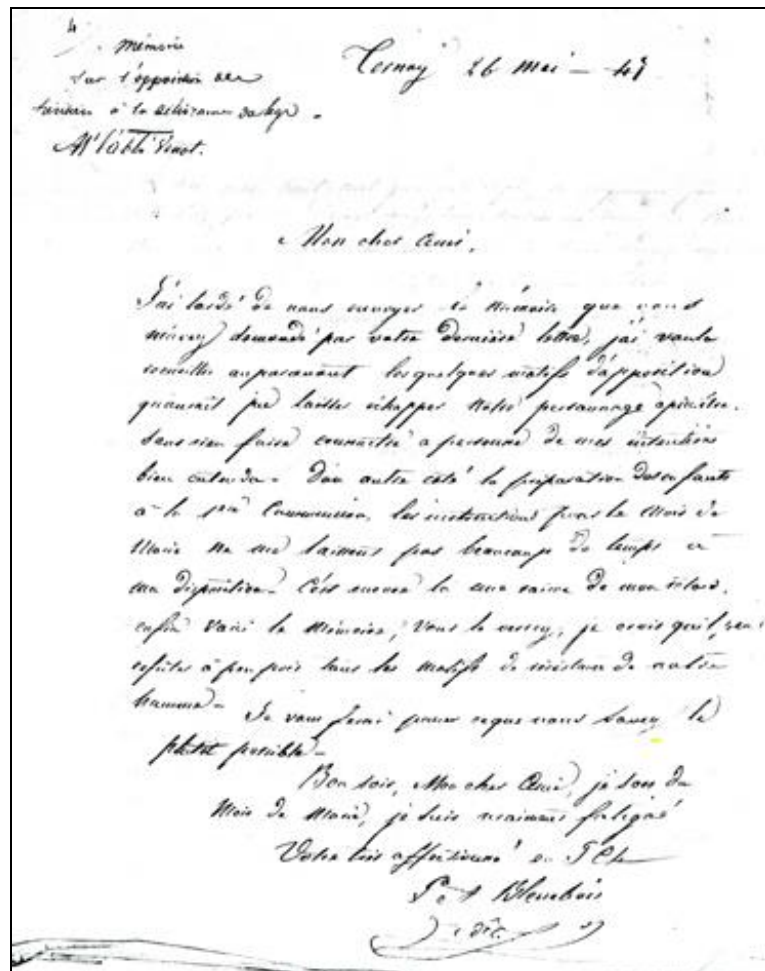 4
Mémoire
sur l'opposition
à la délivrance du legs.
Mr l'abbé
26 Mai - 47
Mon cher Ami,
J'ai tardé de vous envoyer le Mémoire que vous
m'avez demandé par votre dernière lettre, j'ai voulu
recueillir auparavant les quelques motifs d'opposition
qu'aurait pu laisser échapper notre personnage
sans rien faire connaître a personne de mes intentions
bien entendu. D'un autre côté la préparation des enfants
à la 1ère Communion, les instructions pour le Mois de
Marie ne me laissent pas beaucoup de temps à
ma disposition. C'est encore là une raison de mon retard.
enfin voici le Mémoire, vous le verrez, je crois qu'il
réfuter à peu près tous les motifs de résistance de notre
homme. Je vous ferai passer ce que vous savez le
plutôt possible.
Bon soir, Mon cher Ami, je sors du
Mois de Marie, je suis vraiment fatigué
Votre très affectionné en J Ch